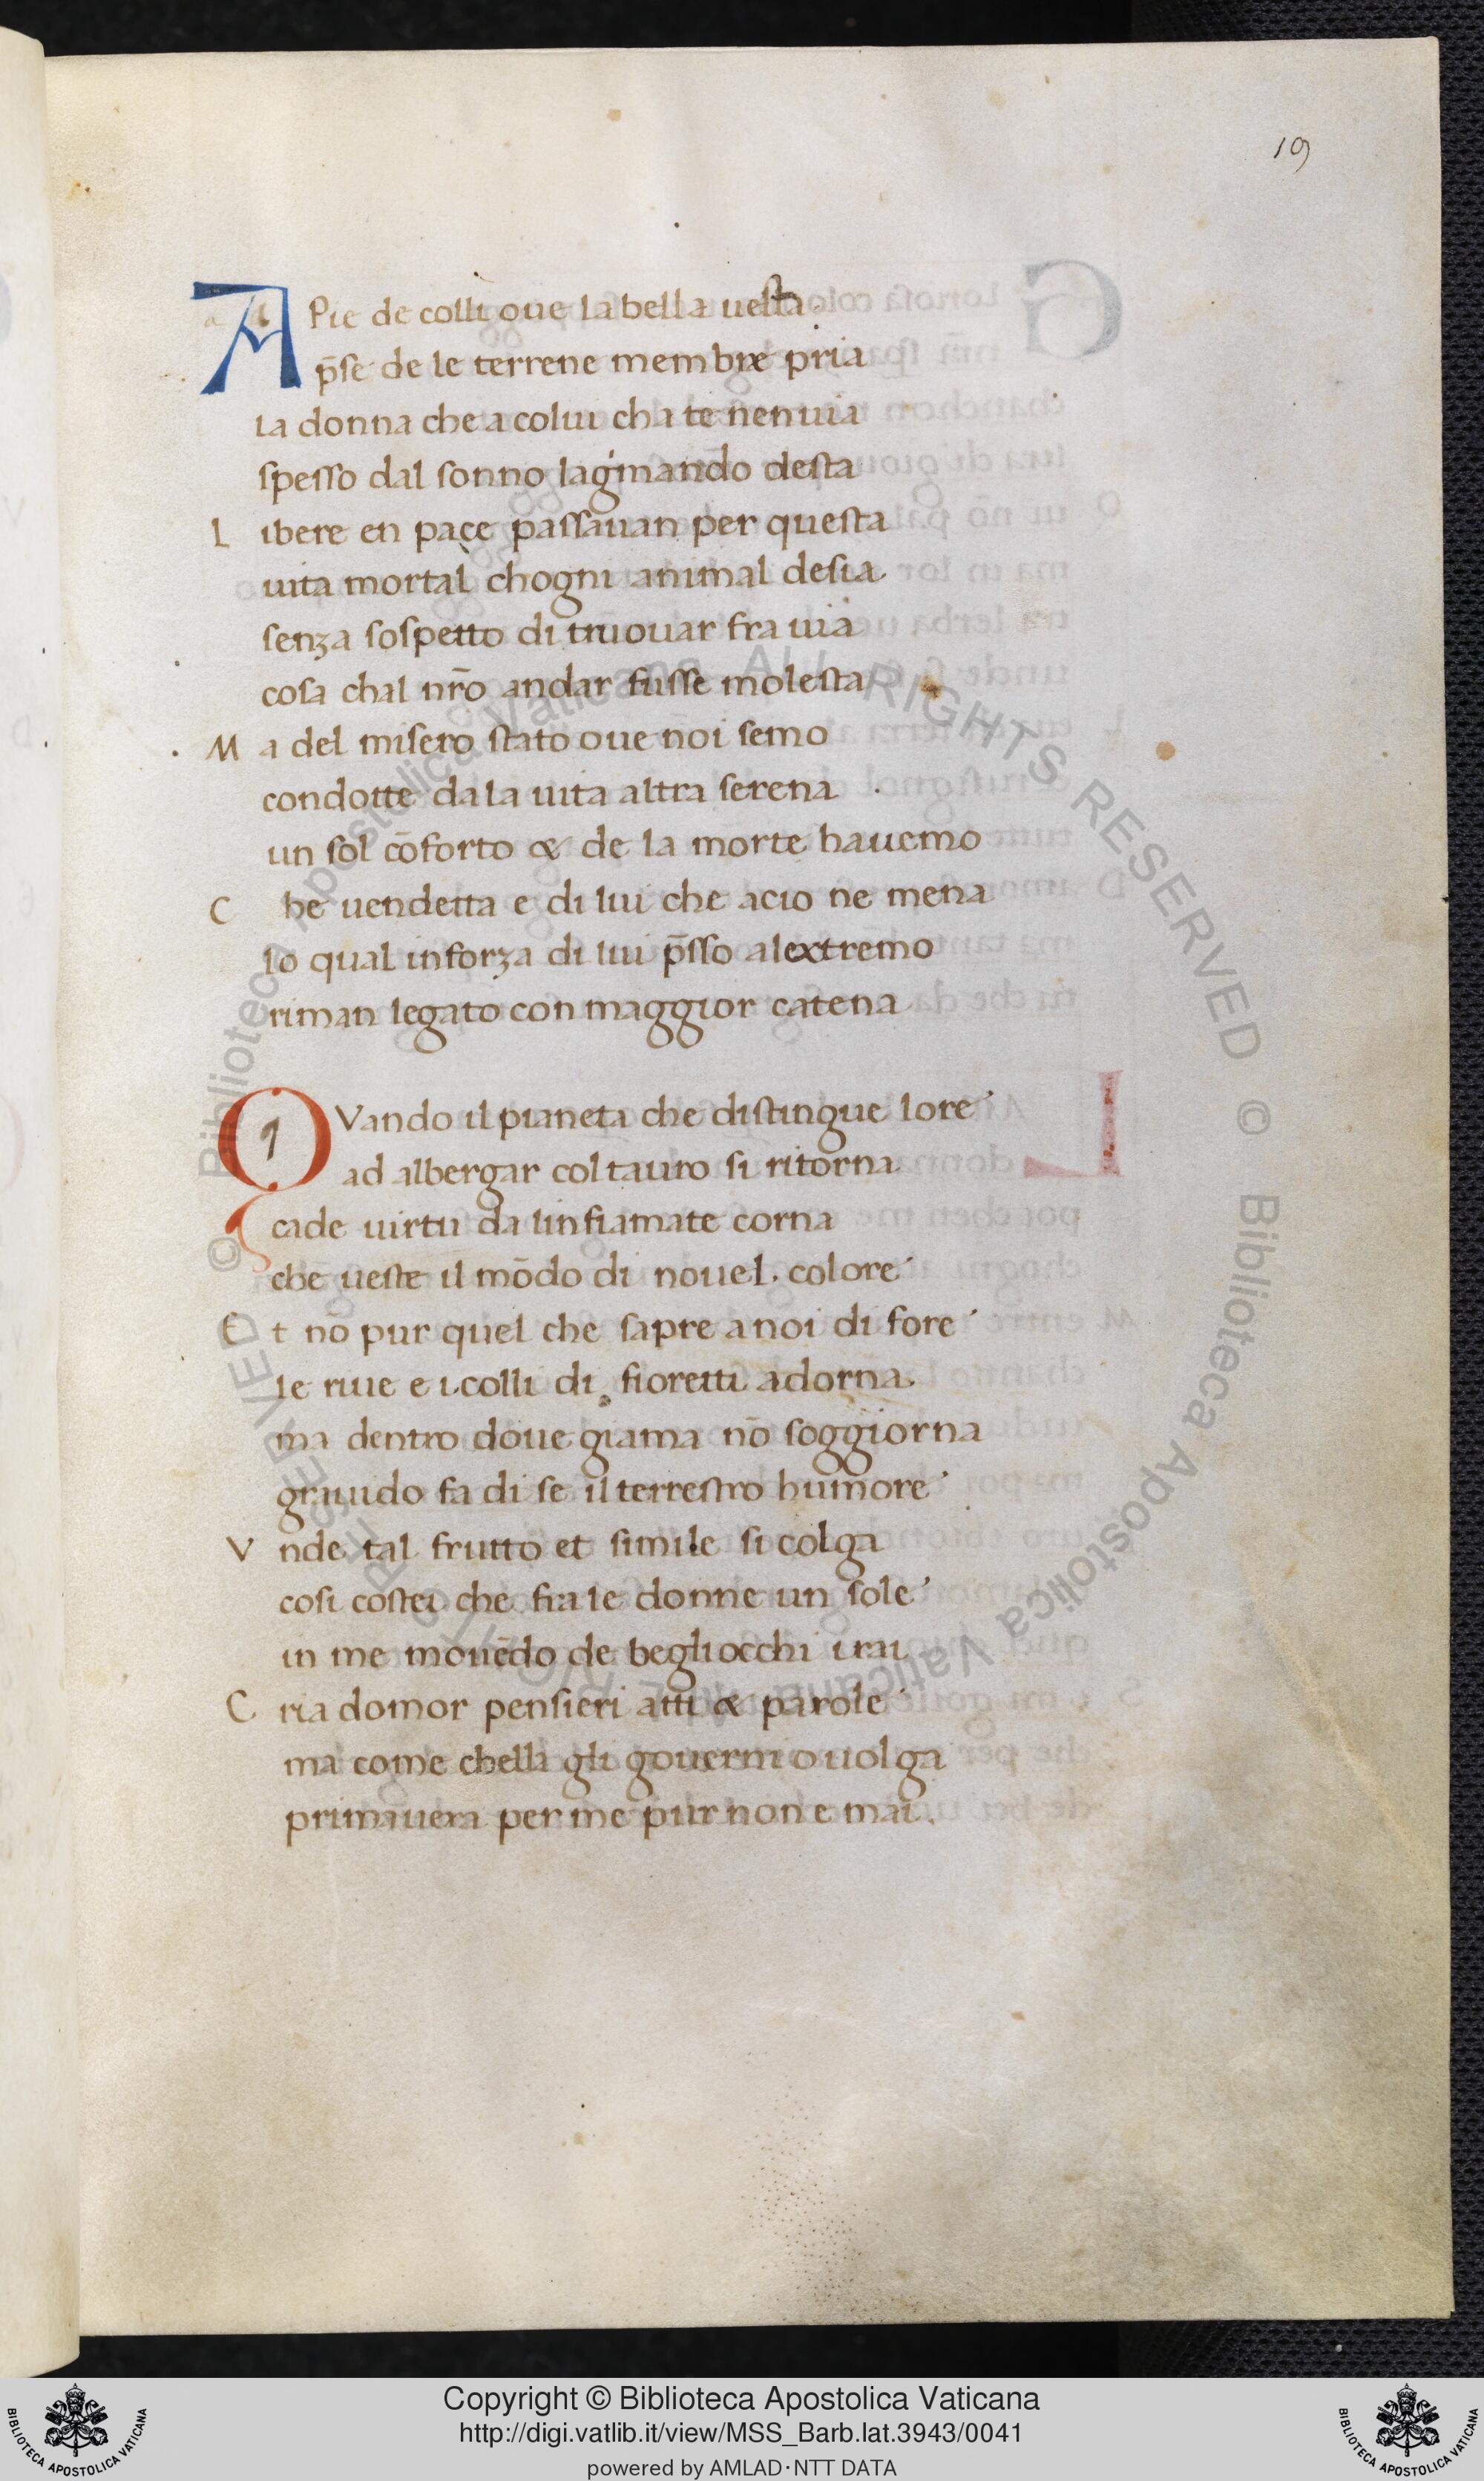 19
A Pie de colli oue la bella uesta.
p̄se de le terrene membre pria
La donna che a colui cha te nenuia
spesso dal sonno lag̍mando desta
L ibere en pace passauan per questa
uita mortal chogni animal desia.
senza sospetto di truouar fra uia
cosa chal nr̄o andar fusse molesta
M a del misero stato oue noi semo
condotte da la uita altra serena
un sol cōforto & de la morte hauemo
C he uendetta e di lui che acio ne mena
lo qual in forza di lui p̄sso alextremo
riman legato con maggior catena
Q Vando il pianeta che distingue lore
ad albergar col tauro si ritorna
cade uirtu da linfiamate corna
che ueste il mōdo di nouel. colore
E t nō pur quel che sapre a noi di fore
le riue e i colli di fioretti adorna.
ma dentro doue giama nō soggiorna
grauido fa di se il terrestro humore
V nde tal frutto et simile si colga
cosi costei che fra le donne un sole
in me mouēdo de begliocchi i rai
C ria domor pensieri atti & parole
ma come chella gli gouerni o uolga
primauera per me pur non e mai.
© Biblioteca Apostolica Vaticana ALL RIGHTS RESERVED © Biblioteca Apostolica Vaticana ALL RIGHTS RESERVED
Copyright © Biblioteca Apostolica Vaticana
http://digi.vatlib.it/view/MSS_Barb.lat.3943/0041
powered by AMLAD·NTT DATA
BIBLIOTECA APOSTOLICA VATICANA
BIBLIOTECA APOSTOLICA VATICANA